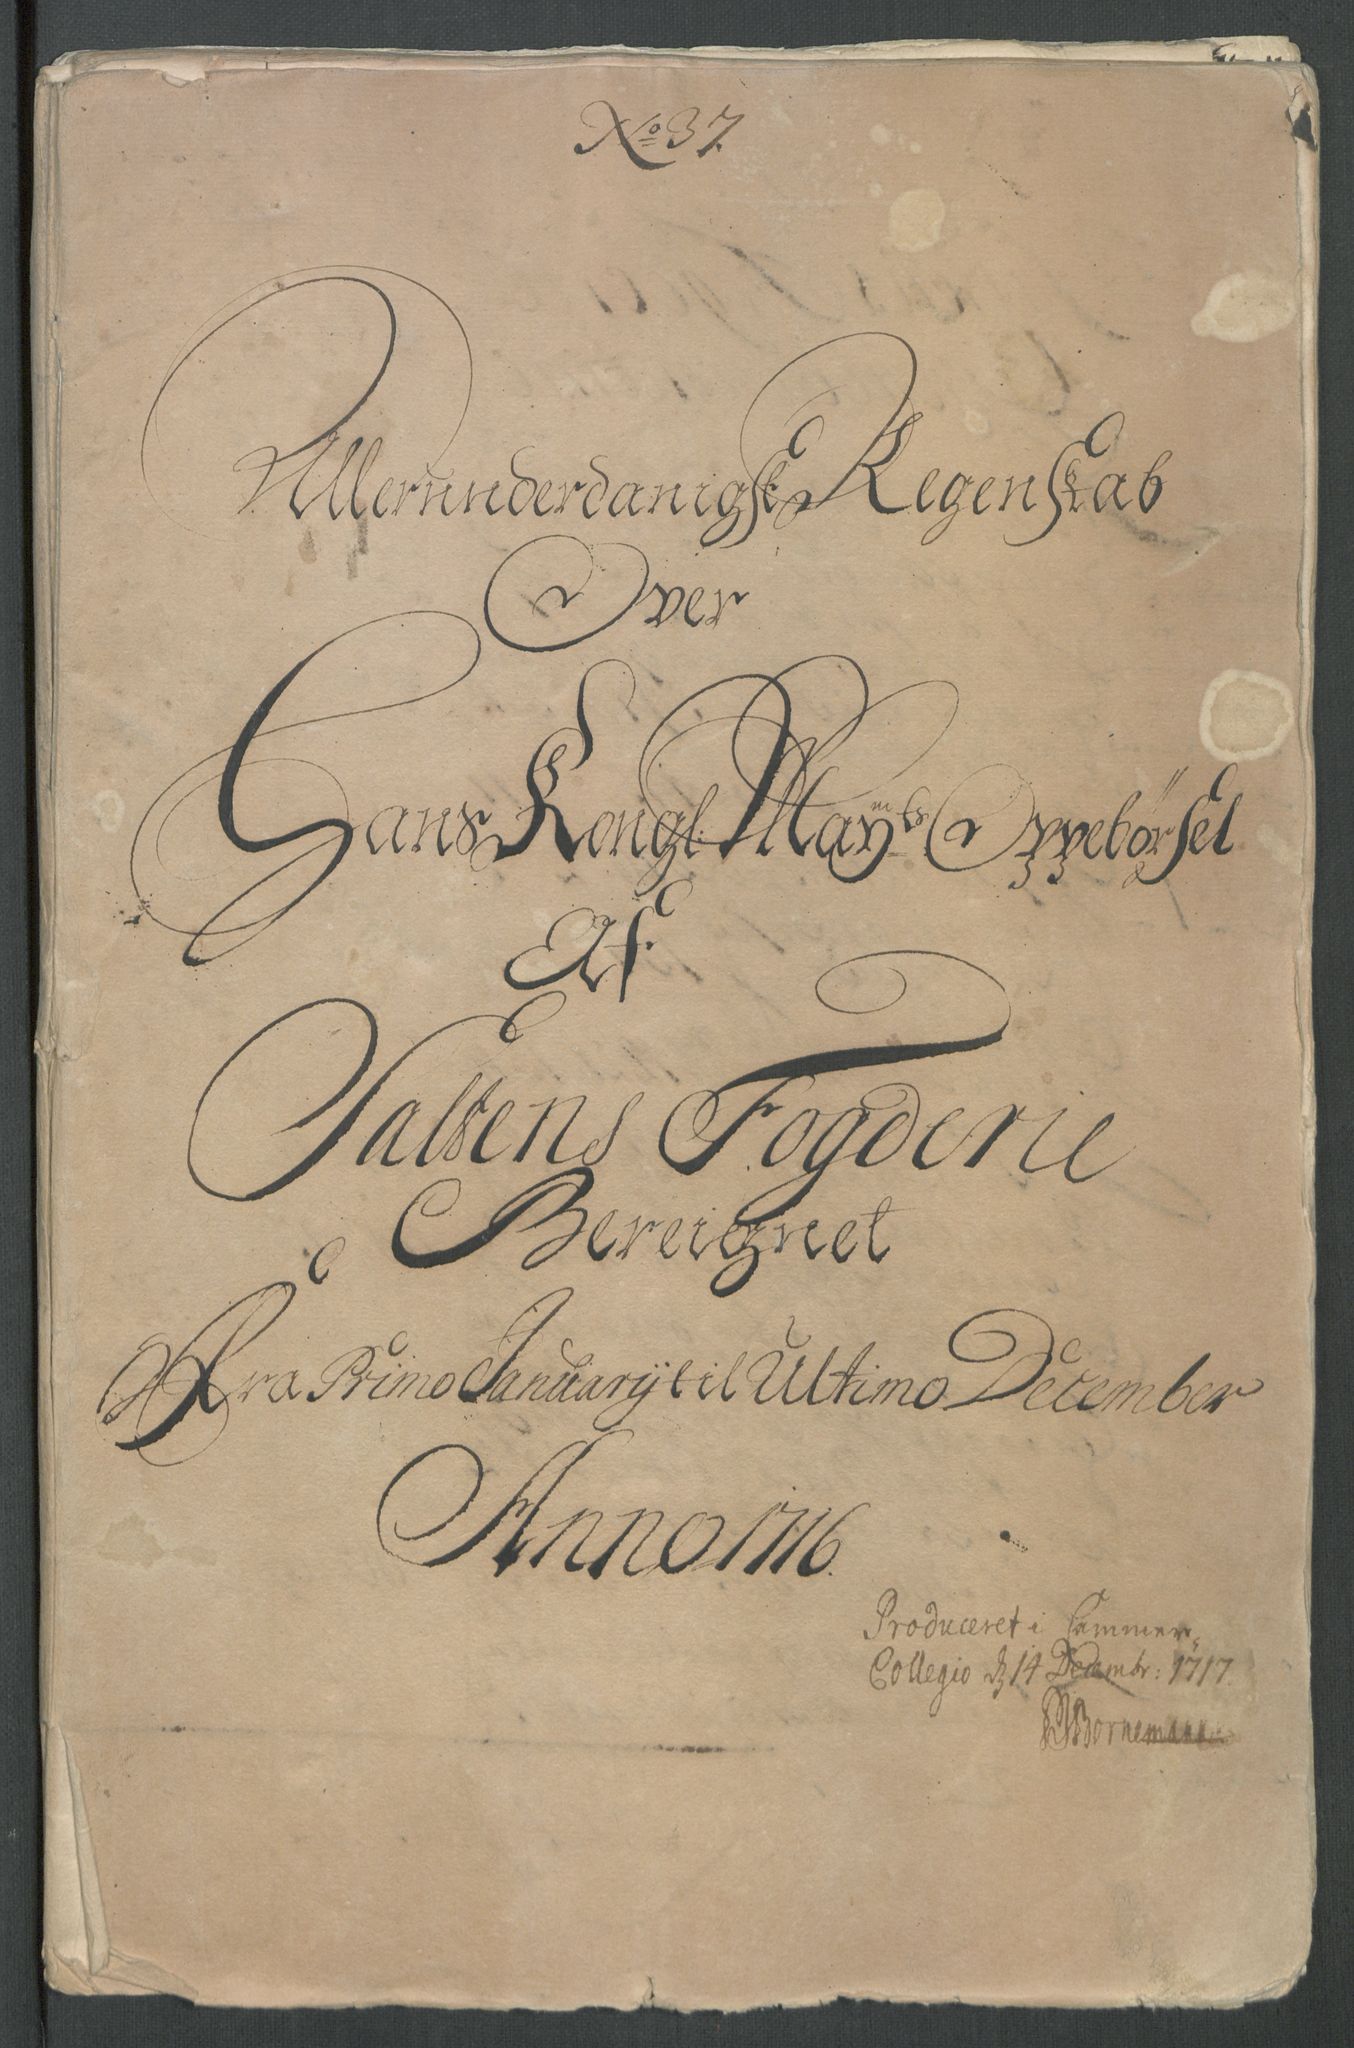 No 37.
Allerunderdanigste Regenskab
Over
Hans Kongl: Mayts Oppebørsel
Af
Saltens Fogderie
Bereignet
Fra Primo January til Ultimo December
Anno 1716.
Produceret i Cammer-
Collegio d 14 Decembr: 1717.
Bornemann